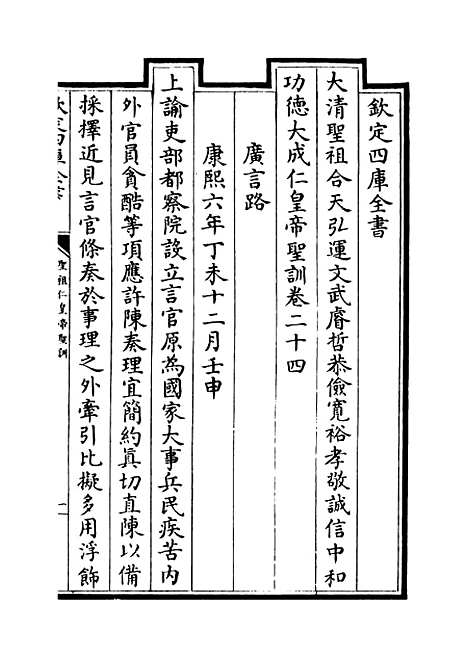 欽定四庫全書
大清聖祖合天弘運文武睿哲恭儉寛裕孝敬誠信中和
功德大成仁皇帝聖訓卷二十四
廣言路
康熙六年丁未十二月壬申
上諭吏部都察院設立言官原為國家大事兵民疾苦内
外官員貪酷等項應許陳奏理宜簡約眞切直陳以備
採擇近見言官條奏於事理之外牽引比擬多用浮飾
欽定四庫全書
聖祖仁皇帝聖訓